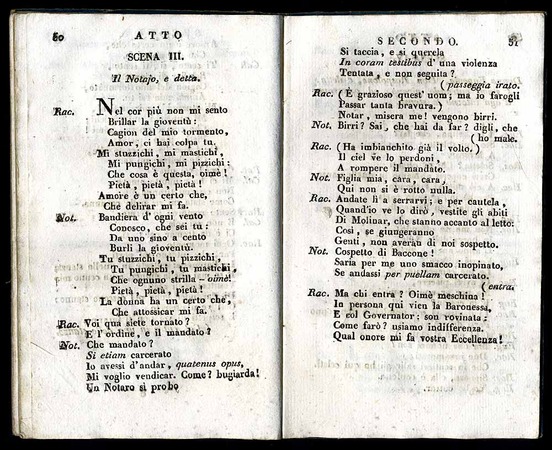 80
ATTO
SCENA III.
Il Notajo, e detta.
Rac. Nel cor più non mi sento
Brillar la gioventù:
Cagion del mio tormento,
Amor, ci hai colpa tu.
Mi stuzzichi, mi mastichi,
Mi pungichi, mi pizzichi:
Che cosa è questa, oimè!
Pietà, pietà, pietà!
Amore è un certo che,
Che delirar mi fa.
Not. Bandiera d'ogni vento
Conosco, che sei tu:
Da uno sino a cento
Burli la gioventù.
Tu stuzzichi, tu pizzichi,
Tu pungichi, tu mastichi,
Che ognuno strilla - oimè!
Pietà, pietà, pietà!
La donna ha un certo che,
Che attossicar mi fa.
Rac. Voi qua siete tornato?
E l'ordine, e il mandato?
Not. Che mandato?
Si etiam carcerato
Io avessi d'andar, quatenus opus,
Mi voglio vendicar. Come? bugiarda!
Un Notaro sì probo
SECONDO.
81
Si taccia, e si querela
In coram testibus d'una violenza
Tentata, e non seguita?
(passeggia irato.
Rac. (È grazioso quest'uom; ma io farogli
Passar tanta bravura.)
Notar, misera me! vengono birri.
Not. Birri? Sai, che hai da far? digli, che
(ho male.
Rac. (Ha imbianchito già il volto.)
Il ciel ve lo perdoni,
A rompere il mandato.
Not. Figlia mia, cara, cara,
Qui non si è rotto nulla.
Rac. Andate lì a serrarvi; e per cautela,
Quand'io ve lo dirò, vestite gli abiti
Di Molinar, che stanno accanto al letto:
Così, se giungeranno
Genti, non averan di noi sospetto.
Not. Cospetto di Baccone!
Saria per me uno smacco inopinato,
Se andassi per puellam carcerato.
(entra.
Rac. Ma chi entra? Oimè meschina!
In persona qui vien la Baronessa,
E col Governator: son rovinata:
Come farò? usiamo indifferenza.
Qual onore mi fa vostra Eccellenza!